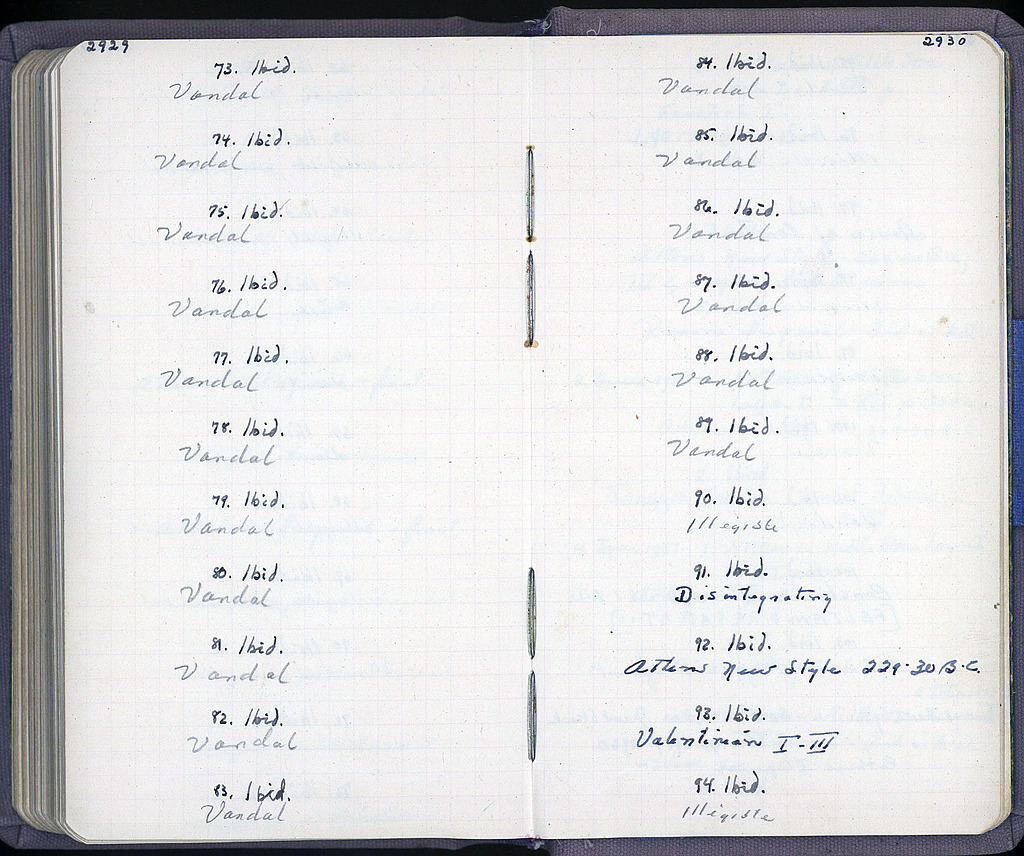 2929
73. Ibid.
Vandal
74. Ibid.
Vandal
75. Ibid.
Vandal
76. Ibid.
Vandal
77. Ibid.
Vandal
78. Ibid.
Vandal
79. Ibid.
Vandal
80. Ibid.
Vandal
81. Ibid.
Vandal
82. Ibid.
Vandal
83. Ibid.
Vandal
2930
84. Ibid.
Vandal
85. Ibid.
Vandal
86. Ibid.
Vandal
87. Ibid.
Vandal
88. Ibid.
Vandal
89. Ibid.
Vandal
90. Ibid.
Illegible
91. Ibid.
Disintegrating
92. Ibid.
Athens New Style 229-30 B.C.
93. Ibid.
Valentinian I-III
94. Ibid.
Illegible